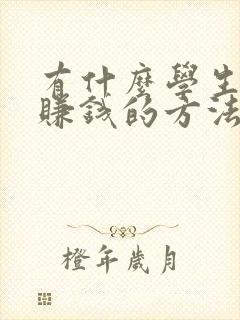 有什麼學生
賺錢的方法
橙年歲月